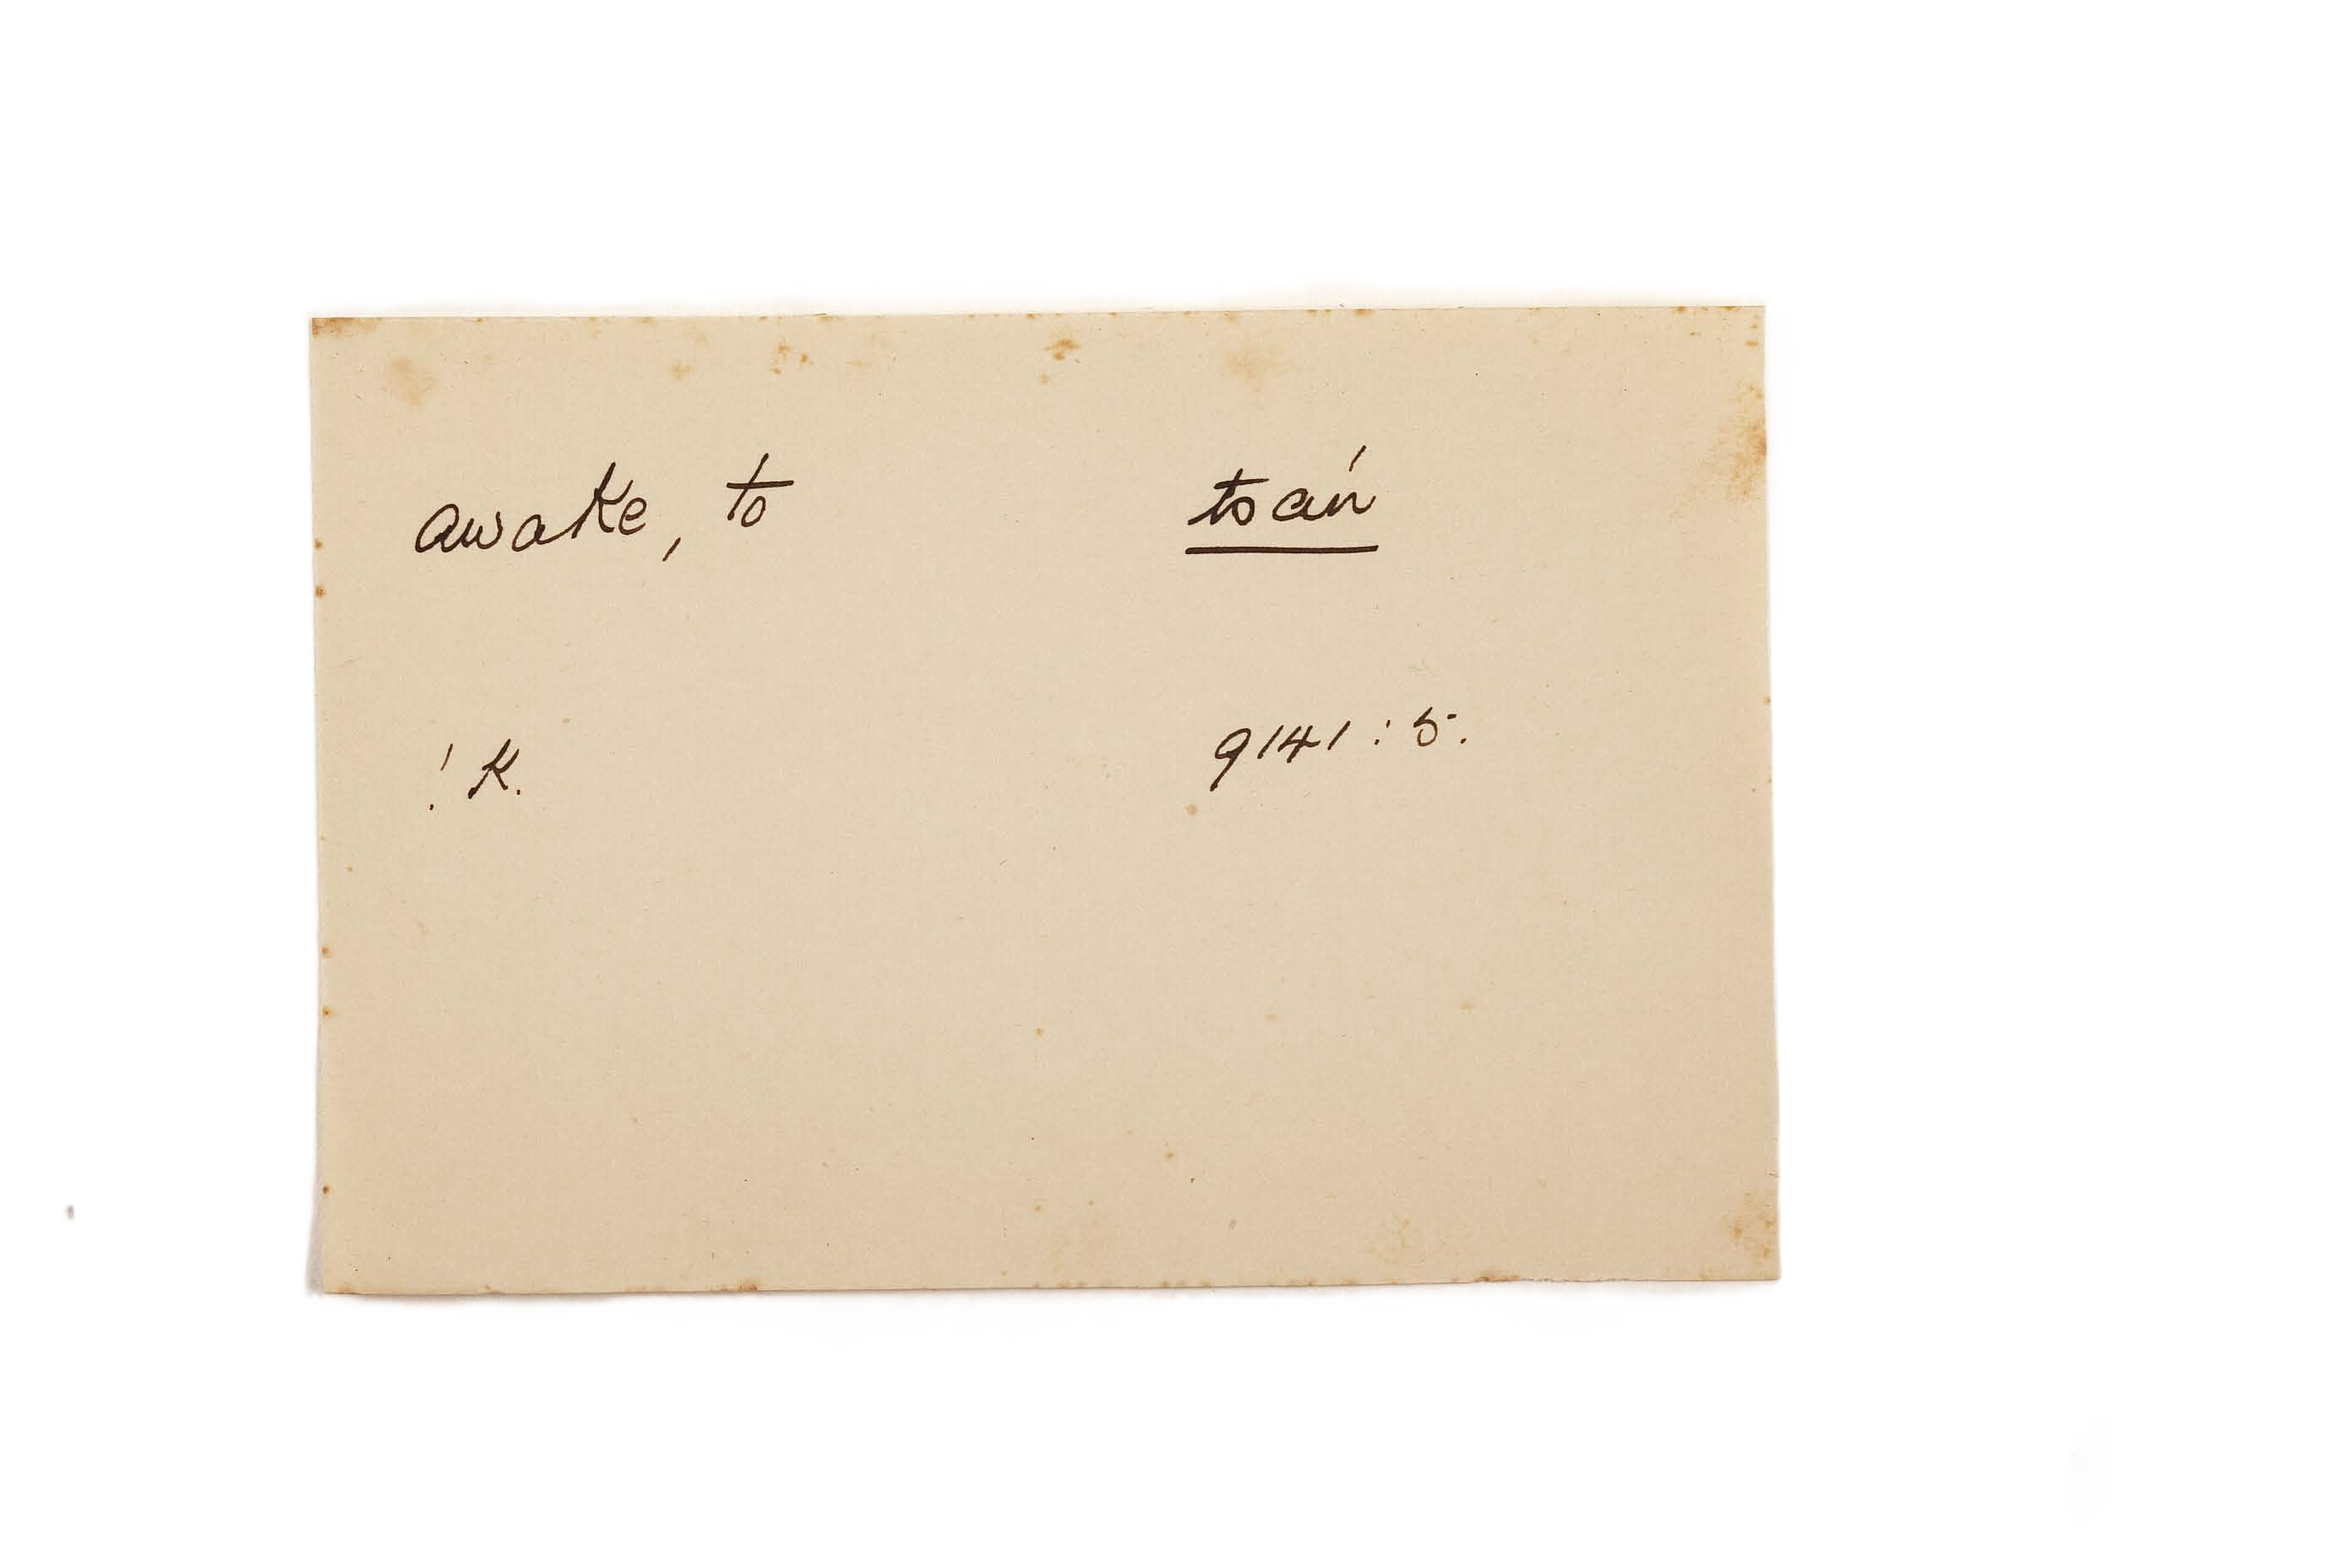 awake, to tsań
!K. 9141:5.